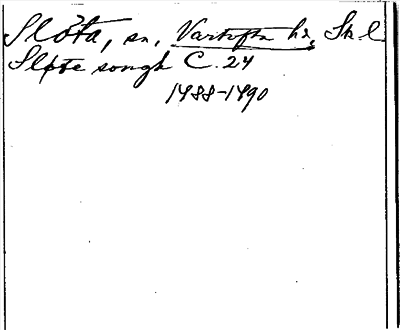 Slöta, sn, Vartofta hd, Sk. l
Sløte songh C. 24
1488-1490